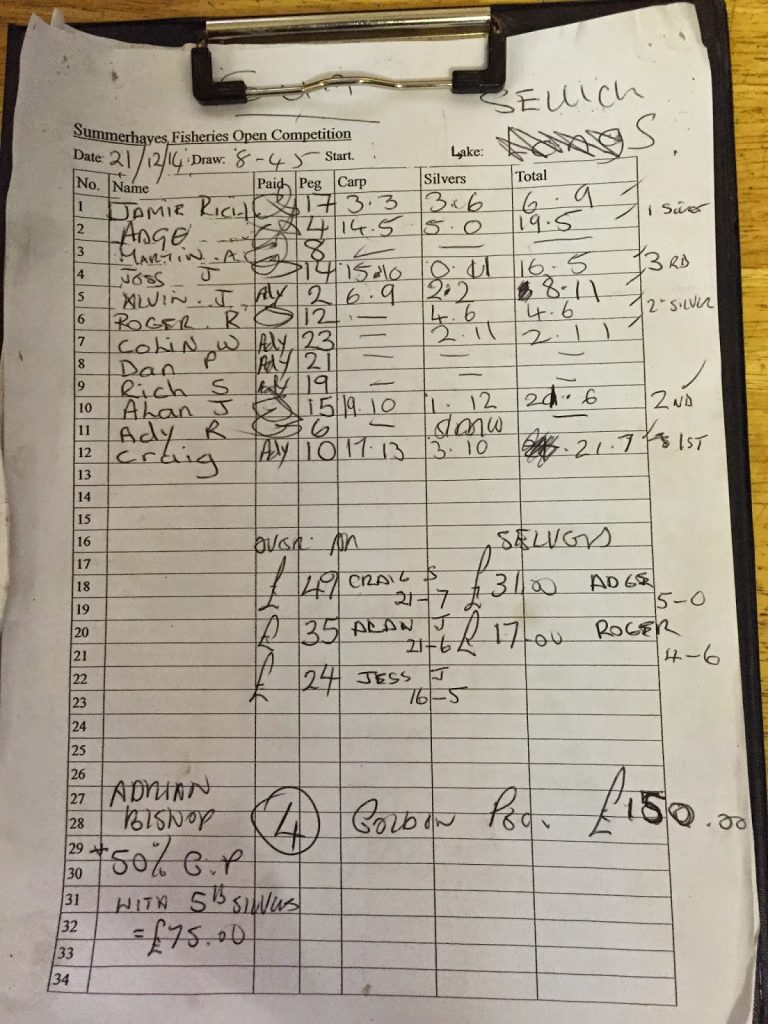 SELLICK
S
Summerhayes Fisheries Open Competition
Date: 21/12/14 Draw: 8-45 Start. Lake:
No. Name Paid Peg Carp Silvers Total
1 JAMIE RICH 17 3.3 3.6 6.9
2 ADGE 4 14.5 5.0 19.5 1 Silver
3 MARTIN.A 8 — — —
4 JESS J 14 15.10 0.11 16.5 3RD
5 ALVIN.J Ady 2 6.9 2.2 8.11
6 ROGER R 12 — 4.6 4.6 2nd SILVER
7 Colin W Ady 23 — 2.11 2.11
8 Dan P Ady 21 — — —
9 Rich S Ady 19 — — —
10 Alan J 15 19.10 1.12 21.6 2ND
11 Ady R 6 — —
12 Craig Ady 10 17.13 3.10 21.7 1ST
13
14
15
16 OVER: All
17
18 £49 CRAIG S £31.00 ADGE
19 21-7 5-0
20 £35 ALAN J £17.00 ROGER
21 21-6 4-6
22 £24 JESS J
23 16-5
24
25
26
27 ADRIAN
28 BISHOP 4 Goldin Peg. £150.00
29
30 50% G.P
31 WITH 5lb SILVERS
32 = £75.00
33
34